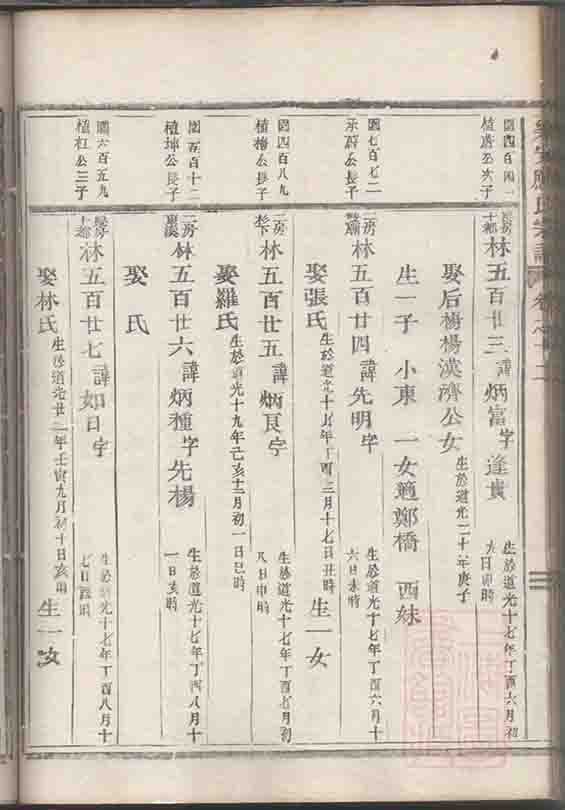 園四百四一
植蔚公次子
林五百廿三 諱炳富字逢貴 生於道光十七年丁酉六月初
六日申時
娶后楊楊漢濟公女 生於道光二十年庚子
生一子 小東 一女適鄭橋 西妹
園七百七二
承蔚公長子
林五百廿四 諱先明字 生於道光十七年丁酉六月十
六日未時
娶張氏 生於道光十七年丁酉三月十七日丑時 生一女
園四百八九
植梅公長子
二房
林五百廿五 諱炳良字 生於道光十七年丁酉七月初
八日申時
娶羅氏 生於道光十九年己亥十二月初一日巳時
園五百十二
植坤公長子
二房
林五百廿六 諱炳種字先楊 生於道光十七年丁酉八月十
一日亥時
娶 氏
園六百五九
植杠公三子
林五百廿七 諱如日字 生於道光十七年丁酉八月十
七日 時
娶林氏 生於道光廿二年壬寅九月初十日亥時 生一女